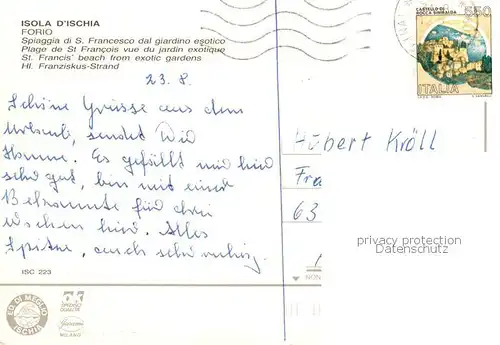 ISOLA D'ISCHIA
FORIO
Spiaggia di S. Francesco dal giardino esotico
Plage de St François vue du jardin exotique
St. Francis' beach from exotic gardens
Hl. Franziskus-Strand
23. 8.
Schöne Grüsse aus dem
Urlaub, sendet Dir
Hanne. Es gefällt mir hier
sehr gut, bin mit einer
Bekannte für drei
Wochen hier. Alles
Spitze, auch sehr ruhig.
ISC 223
ED. DI MEGLIO
ISCHIA
ak
MILANO
CASTELLO DI
ROCCA SINIBALDA
550
ITALIA
Hubert Kröll
Fra
63
privacy protection
Datenschutz
NON